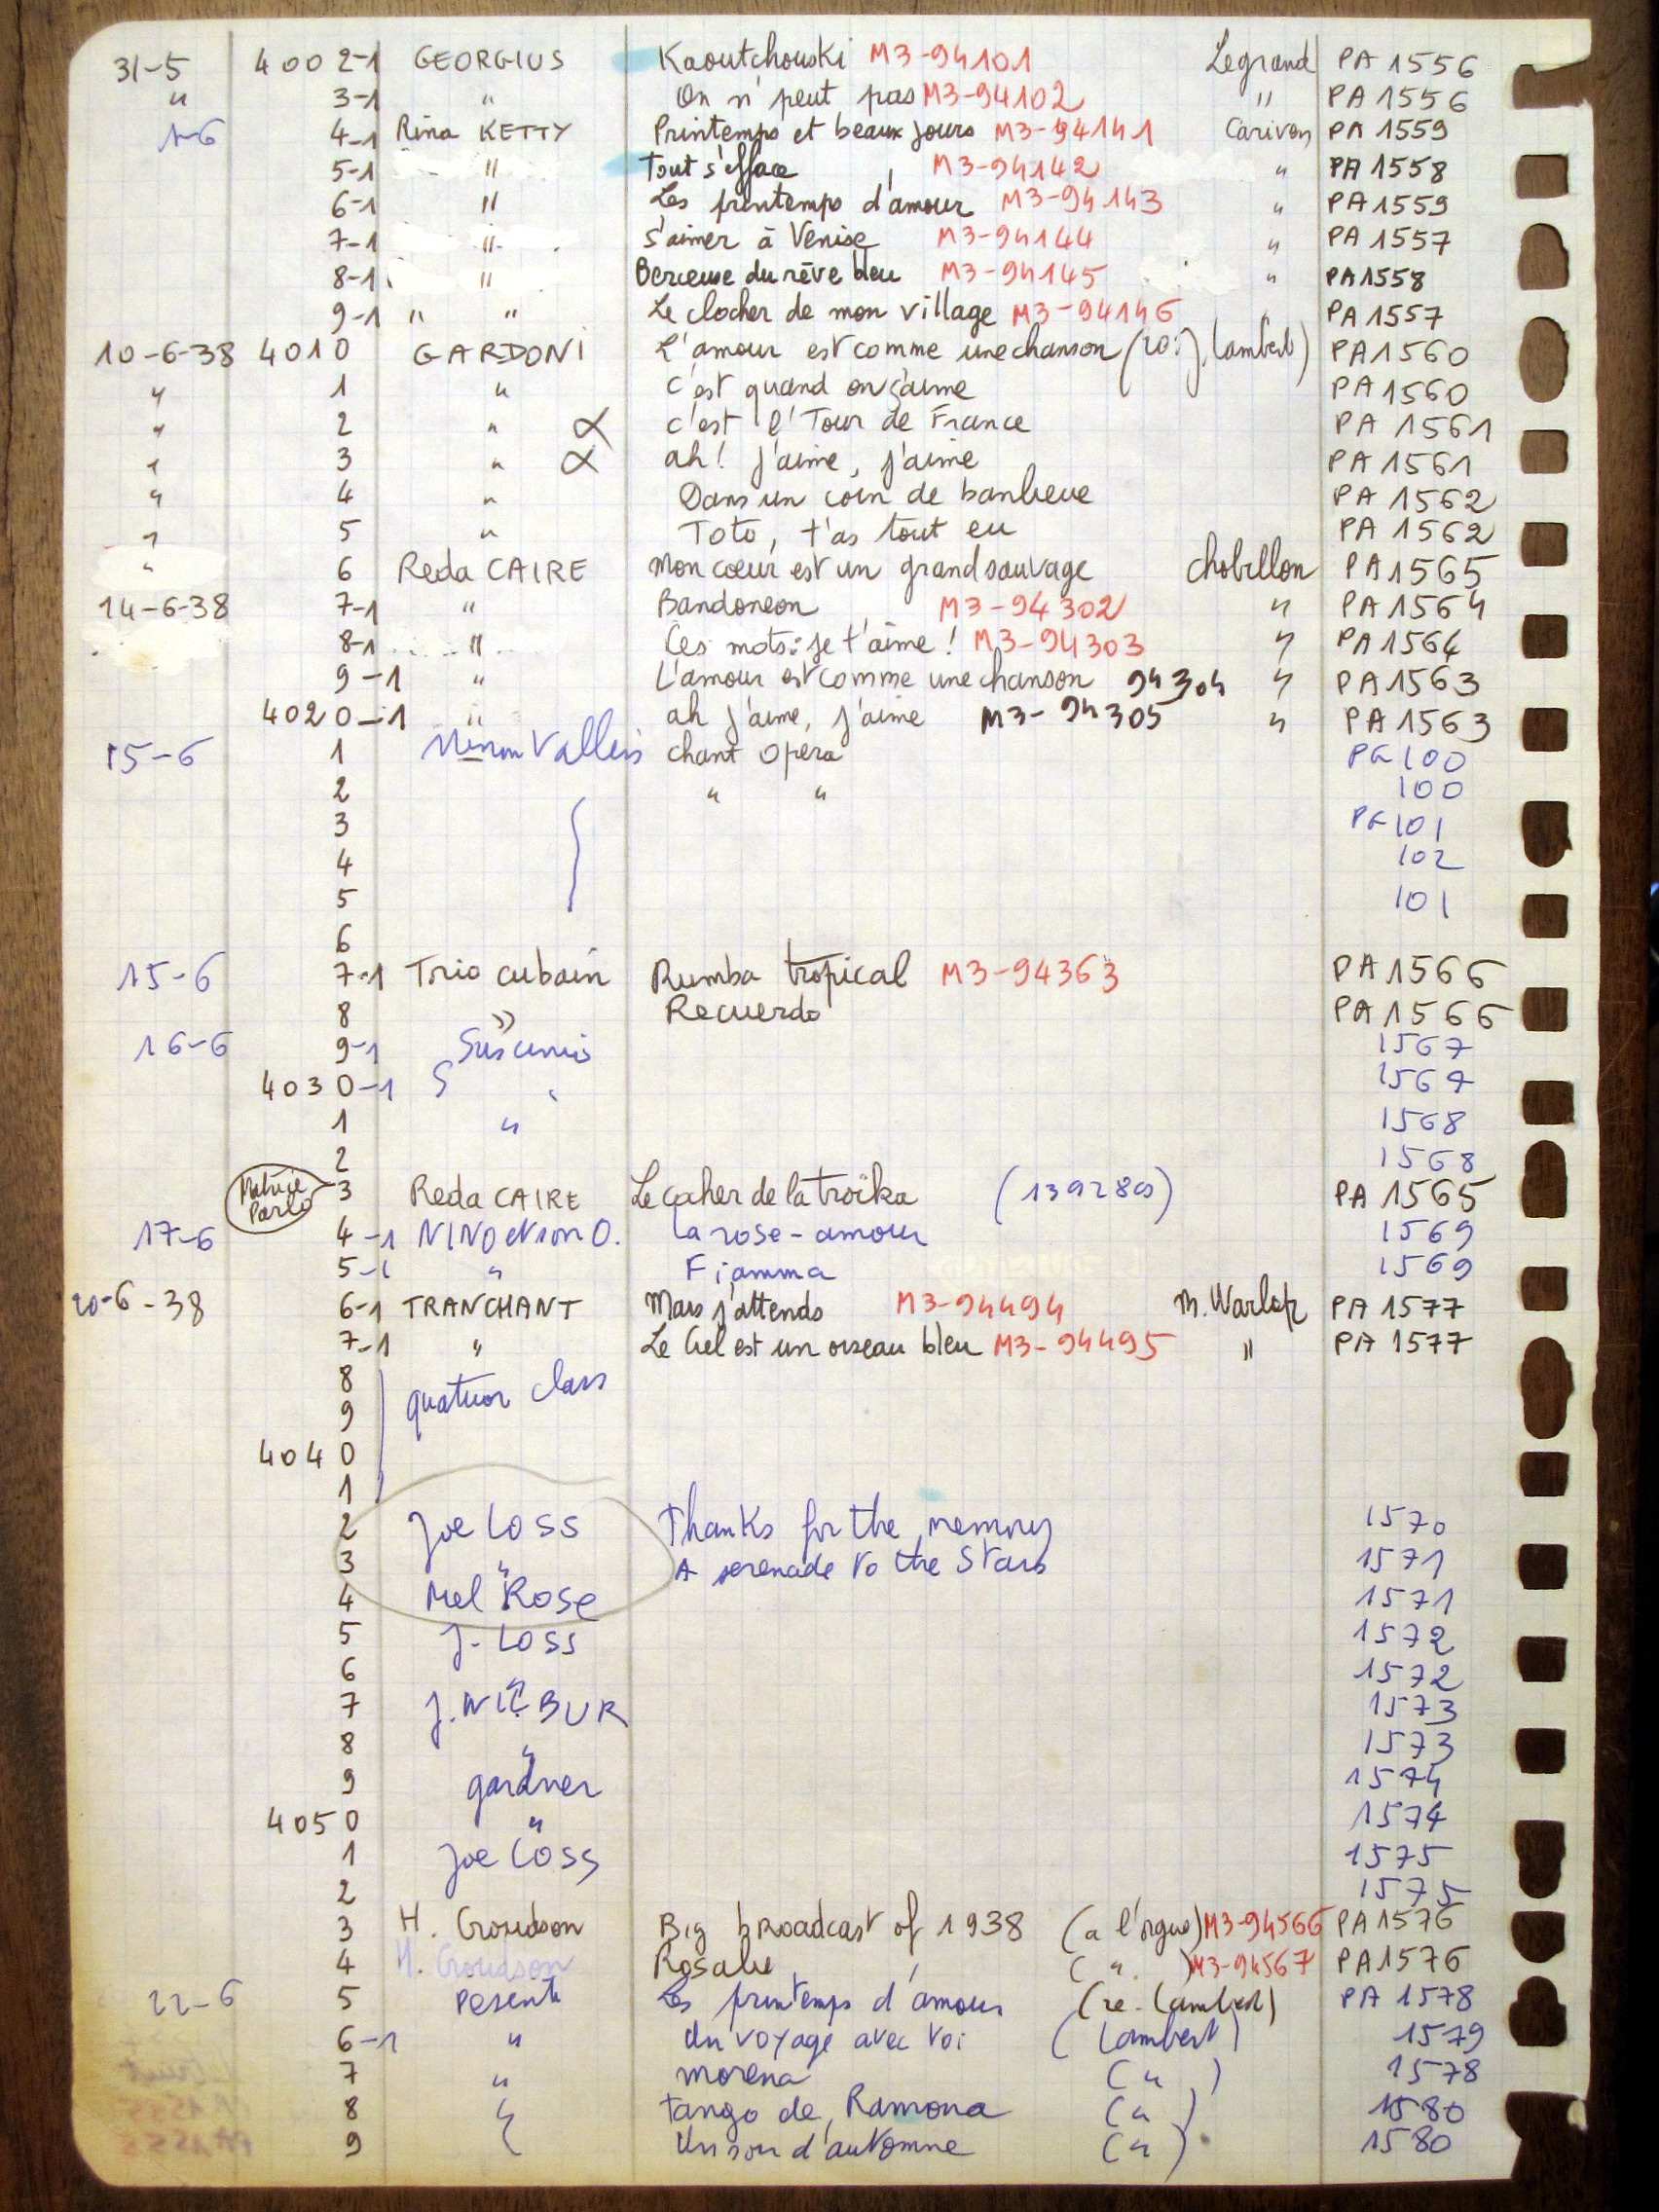 31-5 4002-1 GEORGIUS Kaoutchouski M3-94101 Legrand PA 1556
" 3-1 " On n'peut pas M3-94102 " PA 1556
1-6 4-1 Rina KETTY Printemps et beaux jours M3-94141 Cariven PA 1559
5-1 " Tout s'efface M3-94142 " PA 1558
6-1 " Les printemps d'amour M3-94143 " PA 1559
7-1 " S'aimer à Venise M3-94144 " PA 1557
8-1 " Berceuse du rêve bleu M3-94145 " PA 1558
9-1 " " Le clocher de mon village M3-94146 " PA 1557
10-6-38 4010 GARDONI L'amour est comme une chanson (ro: J. Lambert) PA 1560
" 1 " C'est quand on s'aime PA 1560
" 2 " α C'est l'Tour de France PA 1561
" 3 " α ah! j'aime, j'aime PA 1561
" 4 " Dans un coin de banlieue PA 1562
" 5 " Toto, t'as tout eu PA 1562
" 6 Reda CAIRE Mon coeur est un grand sauvage Chobillon PA 1565
14-6-38 7-1 " Bandoneon M3-94302 " PA 1564
8-1 " Ces mots: je t'aime! M3-94303 " PA 1564
9-1 " L'amour est comme une chanson 94304 " PA 1563
4020-1 " ah j'aime, j'aime M3-94305 " PA 1563
15-6 1 Ninon Vallin chant Opera PG 100
2 " " 100
3 PG 101
4 102
5 101
6
15-6 7-1 Trio cubain Rumba tropical M3-94363 PA 1566
8 " Recuerdo PA 1566
16-6 9-1 Suscinio 1567
4030-1 " 1567
1 " 1568
2 1568
Matrice Parlo 3 Reda CAIRE Le cocher de la troïka (139280) PA 1565
17-6 4-1 NINO et son O. La rose-amour 1569
5-1 " Fiamma 1569
20-6-38 6-1 TRANCHANT Mais j'attends M3-94494 M. Warlop PA 1577
7-1 " Le Ciel est un oiseau bleu M3-94495 " PA 1577
8 quatuor class
9
4040
1
2 Joe LOSS Thanks for the memory 1570
3 " A serenade to the Stars 1571
4 Mel Rose 1571
5 J. LOSS 1572
6 " 1572
7 J. WILBUR 1573
8 " 1573
9 gardner 1574
4050 " 1574
1 Joe LOSS 1575
2 1575
3 H. Croudson Big broadcast of 1938 (a l'orgue) M3-94566 PA 1576
4 H. Croudson Rosalie ( " ) M3-94567 PA 1576
22-6 5 Pesenti Les printemps d'amour (re. Lambert) PA 1578
6-1 " Un voyage avec toi (Lambert) 1579
7 " morena ( " ) 1578
8 " tango de Ramona ( " ) 1580
9 Un soir d'automne ( " ) 1580